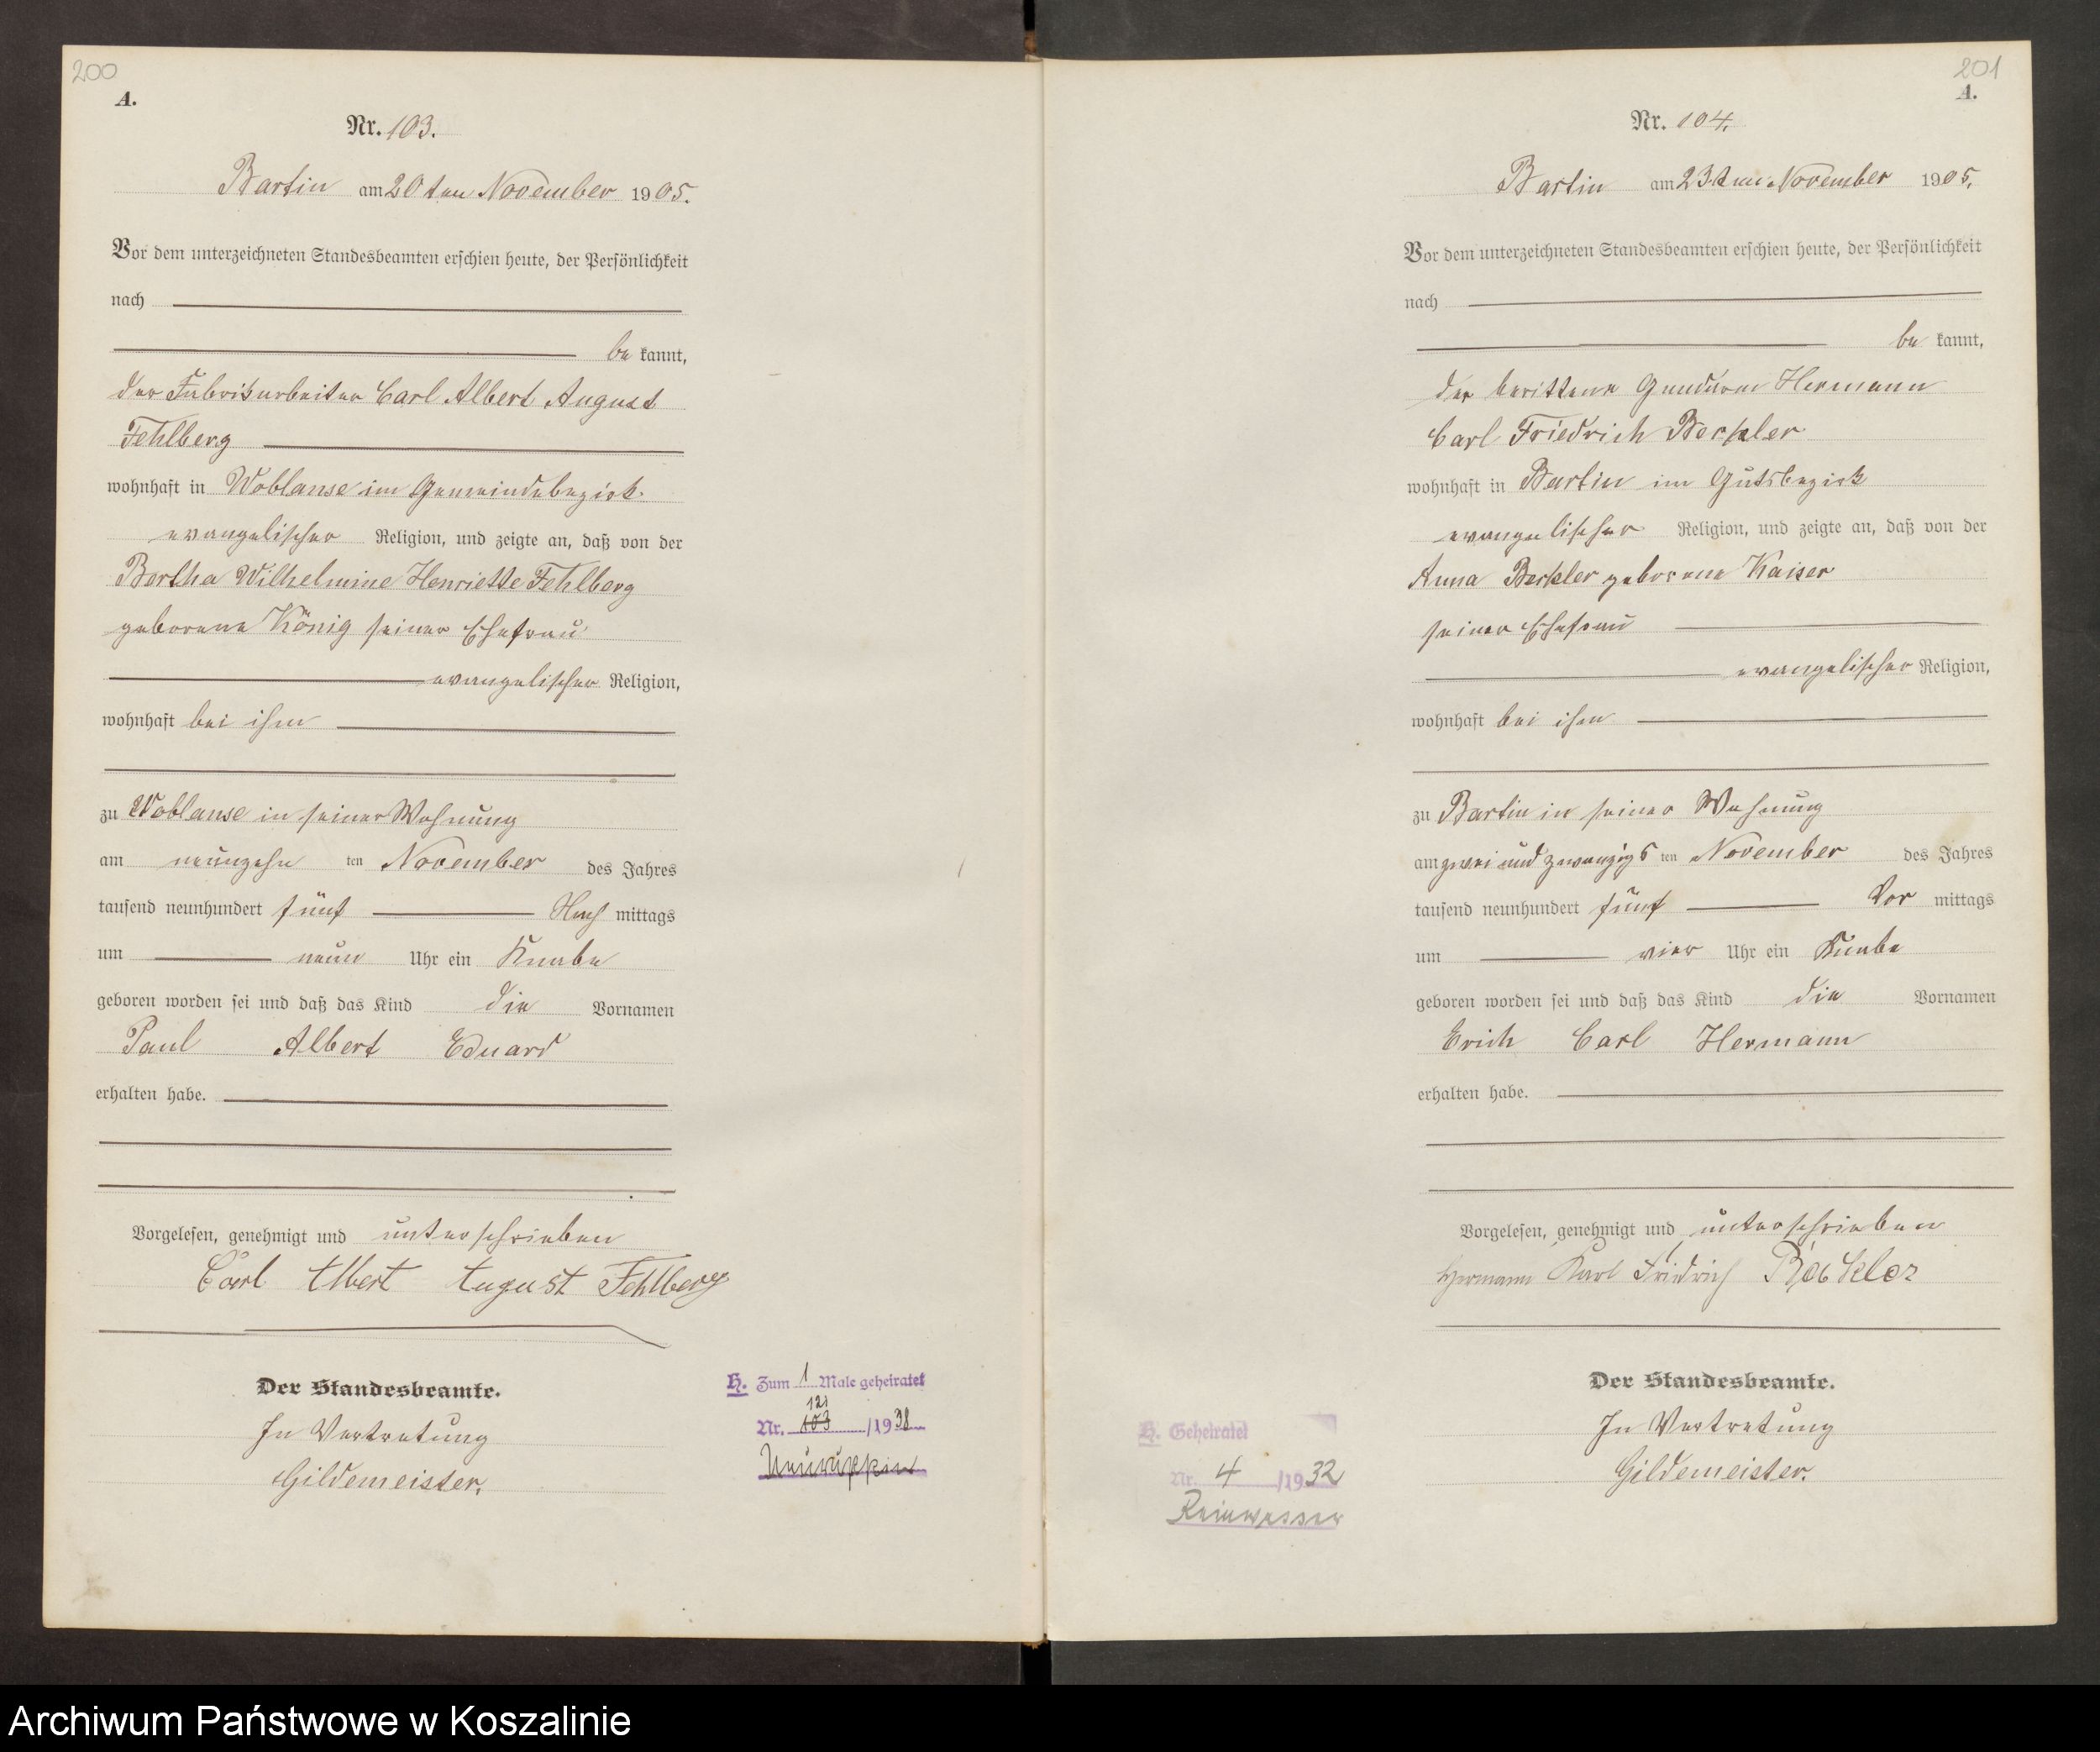 200
A.
Nr. 103.
Bartin am 20ten November 1905.
Vor dem unterzeichneten Standesbeamten erschien heute, der Persönlichkeit
nach
bekannt,
der Fabrikarbeiter Carl Albert August
Fehlberg
wohnhaft in Woblanse im Gemeindebezirk
evangelischer Religion, und zeigte an, daß von der
Bertha Wilhelmine Henriette Fehlberg
geborene König seiner Ehefrau
evangelischer Religion,
wohnhaft bei ihm
zu Woblanse in seiner Wohnung
am neunzehn ten November des Jahres
tausend neunhundert fünf Nach mittags
um neun Uhr ein Knabe
geboren worden sei und daß das Kind die Vornamen
Paul Albert Eduard
erhalten habe.
Vorgelesen, genehmigt und unterschrieben
Carl Albert August Fehlberg
Der Standesbeamte.
In Vertretung
Gildemeister.
H. Zum 1 Male geheiratet
121
Nr. 103 /1938
Neuruppin
201
A.
Nr. 104.
Bartin am 23ten November 1905.
Vor dem unterzeichneten Standesbeamten erschien heute, der Persönlichkeit
nach
bekannt,
der berittene Gendarm Hermann
Carl Friedrich
wohnhaft in Bartin im Gutsbezirk
evangelischer Religion, und zeigte an, daß von der
Anna geborene Kaiser
seiner Ehefrau
evangelischer Religion,
wohnhaft bei ihm
zu Bartin in seiner Wohnung
am zwei und zwanzigs ten November des Jahres
tausend neunhundert fünf Vor mittags
um vier Uhr ein Knabe
geboren worden sei und daß das Kind die Vornamen
Erich Carl Hermann
erhalten habe.
Vorgelesen, genehmigt und unterschrieben
Hermann Karl Fridrich
Der Standesbeamte.
In Vertretung
Gildemeister.
H. Geheiratet
Nr. 4 /1932
Reinwasser
Archiwum Państwowe w Koszalinie